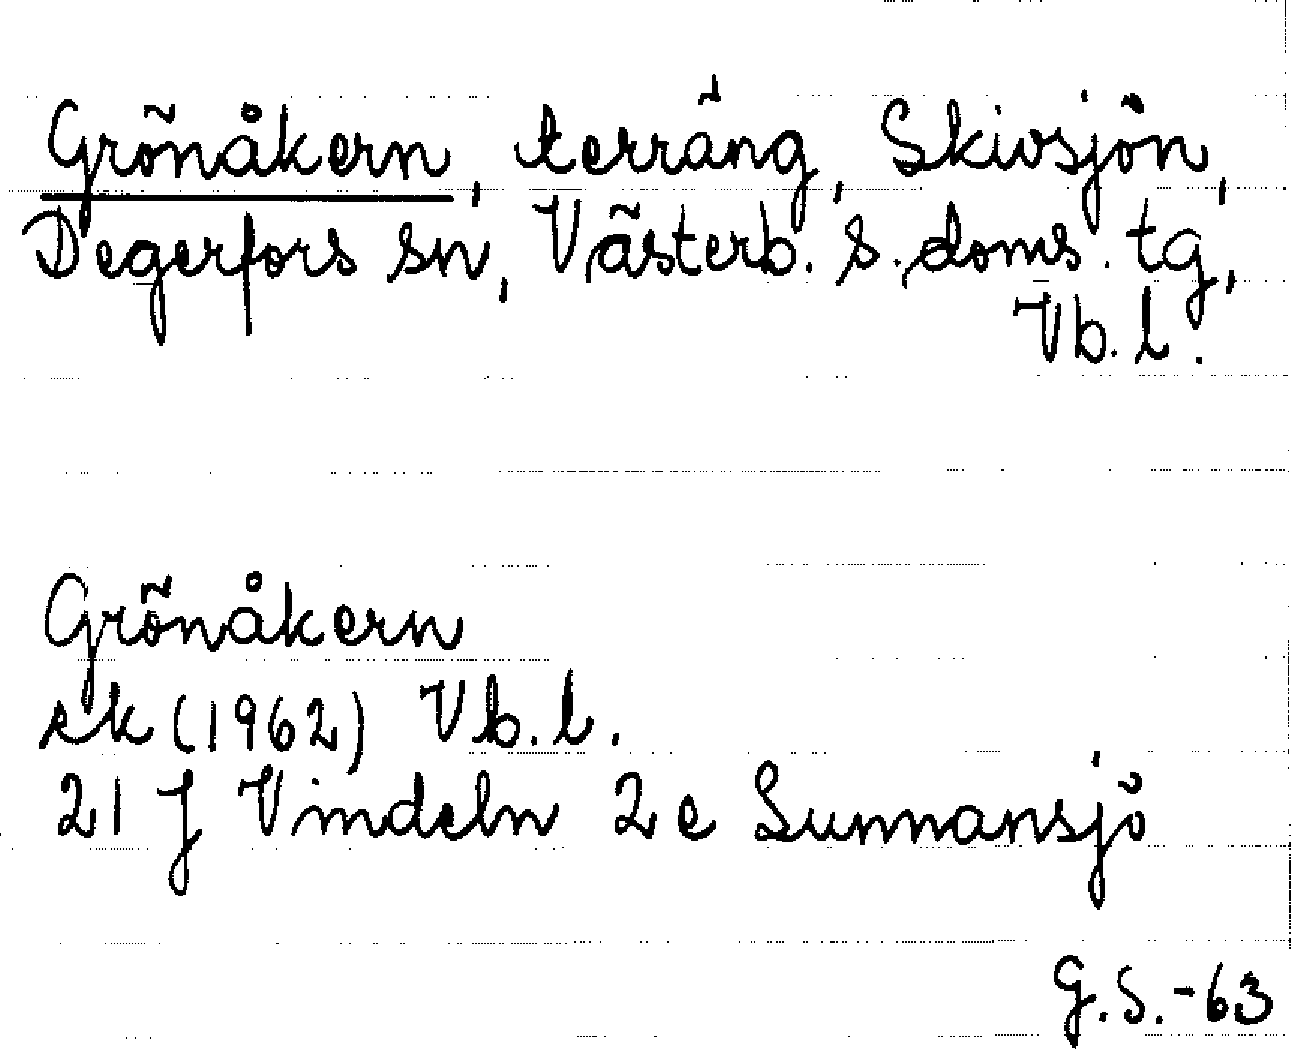 Grönåkern, terräng, Skivsjön,
Degerfors sn, Västerb. s. doms. tg,
Vb. l.
Grönåkern
ek (1962) Vb. l.
21 J Vindeln 2 e Sunnansjö
G.S.-63